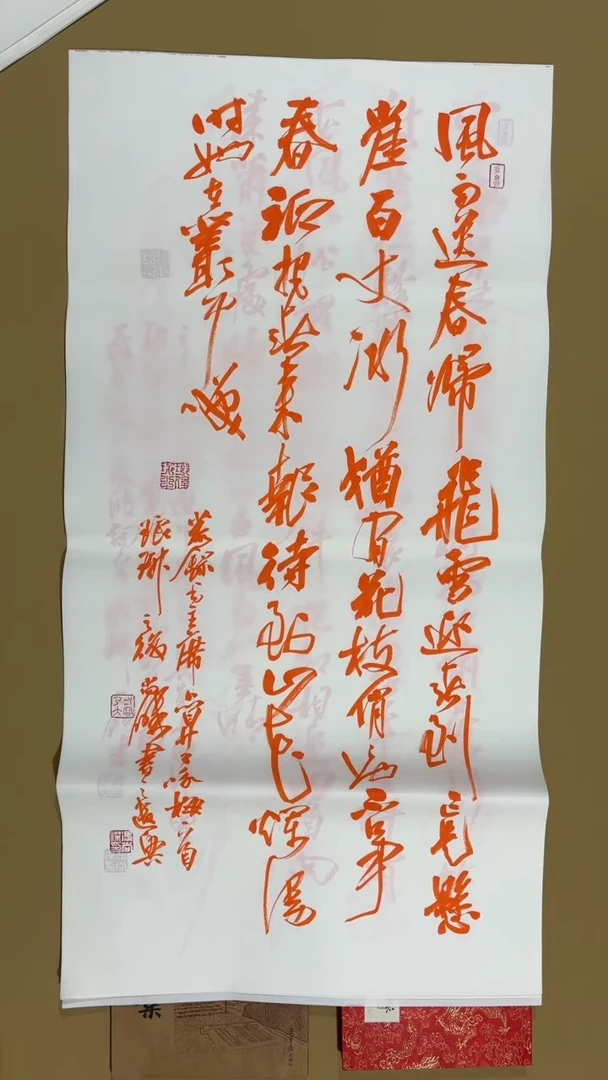 風雨送春歸飛雪迎春到已是懸
崖百丈冰猶有花枝俏也不爭
春祇把春來報待到山花爛漫
時她在叢中咲
恭錄毛主席卜算子咏梅一首
琅琊之後尚書之遣興
集